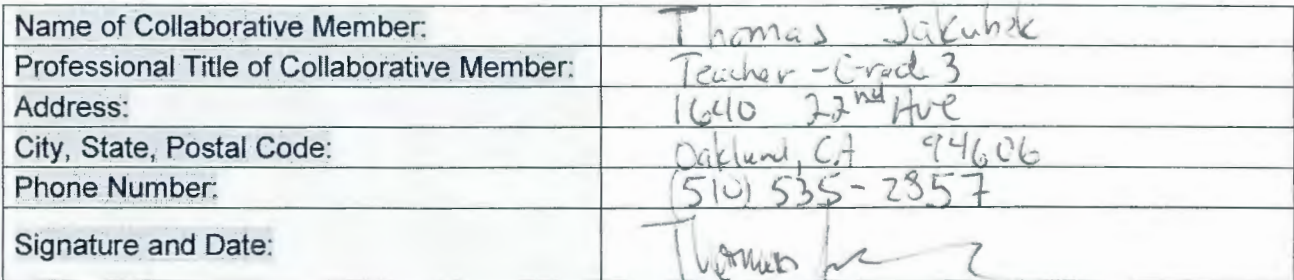 Name of Collaborative Member: Thomas Jakubek
Professional Title of Collaborative Member: Teacher - Grade 3
Address: 1640 22nd Ave
City, State, Postal Code: Oakland, CA 94606
Phone Number: (510) 535-2857
Signature and Date: Thomas